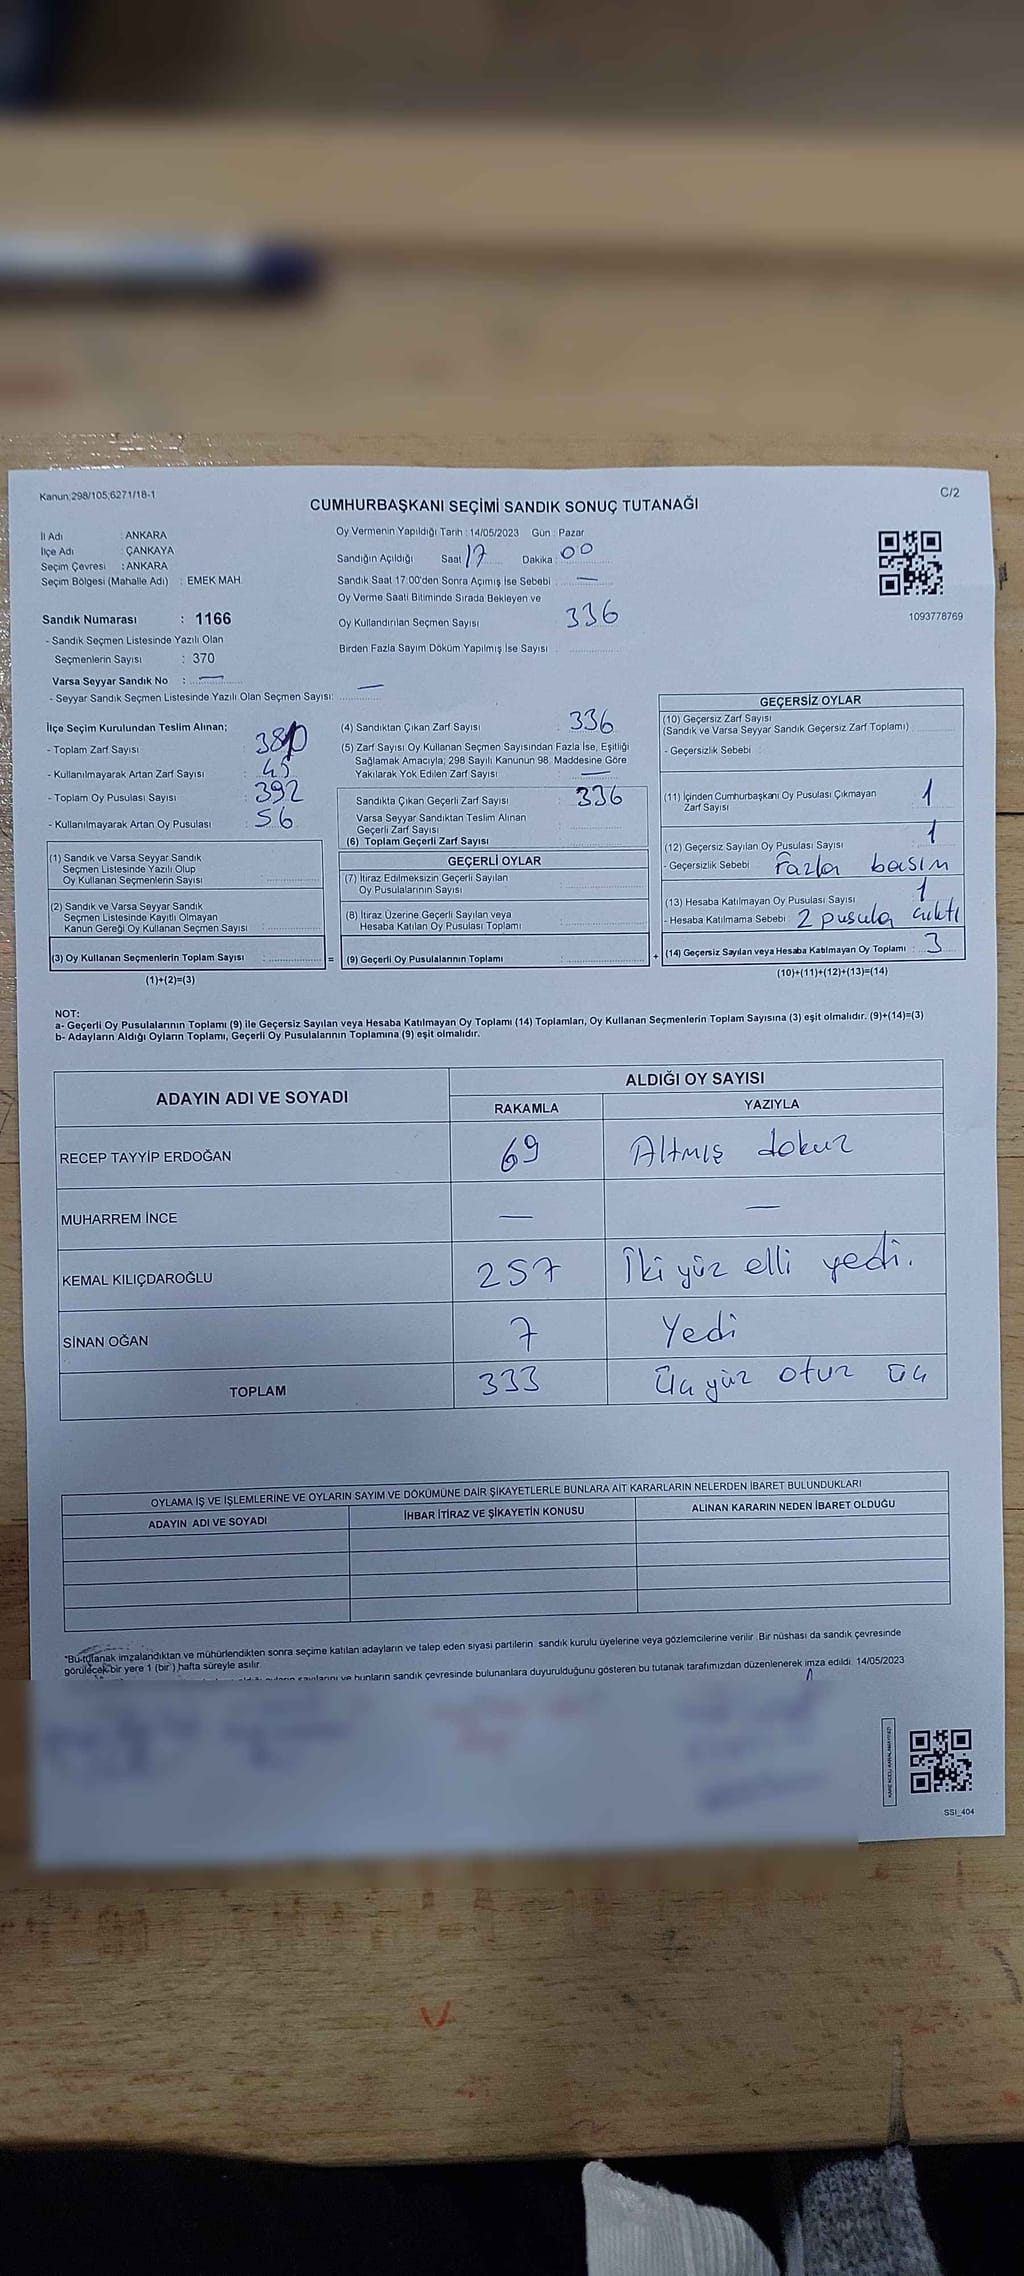 Kanun:298/105;6271/18-1
C/2
CUMHURBAŞKANI SEÇİMİ SANDIK SONUÇ TUTANAĞI
İl Adı : ANKARA
İlçe Adı : ÇANKAYA
Seçim Çevresi : ANKARA
Seçim Bölgesi (Mahalle Adı) : EMEK MAH.
Oy Vermenin Yapıldığı Tarih : 14/05/2023 Gün : Pazar
Sandığın Açıldığı Saat 17 Dakika : 00
Sandık Saat 17:00'den Sonra Açımış İse Sebebi : —
Oy Verme Saati Bitiminde Sırada Bekleyen ve
Oy Kullandırılan Seçmen Sayısı : 336
Birden Fazla Sayım Döküm Yapılmış İse Sayısı :
1093778769
Sandık Numarası : 1166
- Sandık Seçmen Listesinde Yazılı Olan
Seçmenlerin Sayısı : 370
Varsa Seyyar Sandık No : —
- Seyyar Sandık Seçmen Listesinde Yazılı Olan Seçmen Sayısı: —
İlçe Seçim Kurulundan Teslim Alınan;
- Toplam Zarf Sayısı :
- Kullanılmayarak Artan Zarf Sayısı : 45
- Toplam Oy Pusulası Sayısı : 392
- Kullanılmayarak Artan Oy Pusulası : 56
(1) Sandık ve Varsa Seyyar Sandık
Seçmen Listesinde Yazılı Olup
Oy Kullanan Seçmenlerin Sayısı :
(2) Sandık ve Varsa Seyyar Sandık
Seçmen Listesinde Kayıtlı Olmayan
Kanun Gereği Oy Kullanan Seçmen Sayısı :
(3) Oy Kullanan Seçmenlerin Toplam Sayısı : =
(1)+(2)=(3)
(4) Sandıktan Çıkan Zarf Sayısı : 336
(5) Zarf Sayısı Oy Kullanan Seçmen Sayısından Fazla İse, Eşitliği
Sağlamak Amacıyla; 298 Sayılı Kanunun 98. Maddesine Göre
Yakılarak Yok Edilen Zarf Sayısı : —
Sandıkta Çıkan Geçerli Zarf Sayısı : 336
Varsa Seyyar Sandıktan Teslim Alınan
Geçerli Zarf Sayısı :
(6) Toplam Geçerli Zarf Sayısı :
GEÇERLİ OYLAR
(7) İtiraz Edilmeksizin Geçerli Sayılan
Oy Pusulalarının Sayısı :
(8) İtiraz Üzerine Geçerli Sayılan veya
Hesaba Katılan Oy Pusulası Toplamı :
(9) Geçerli Oy Pusulalarının Toplamı : +
GEÇERSİZ OYLAR
(10) Geçersiz Zarf Sayısı
(Sandık ve Varsa Seyyar Sandık Geçersiz Zarf Toplamı) :
- Geçersizlik Sebebi :
(11) İçinden Cumhurbaşkanı Oy Pusulası Çıkmayan
Zarf Sayısı : 1
(12) Geçersiz Sayılan Oy Pusulası Sayısı : 1
- Geçersizlik Sebebi : Fazla basım
(13) Hesaba Katılmayan Oy Pusulası Sayısı : 1
- Hesaba Katılmama Sebebi : 2 pusula çıktı
(14) Geçersiz Sayılan veya Hesaba Katılmayan Oy Toplamı : 3
(10)+(11)+(12)+(13)=(14)
NOT:
a- Geçerli Oy Pusulalarının Toplamı (9) ile Geçersiz Sayılan veya Hesaba Katılmayan Oy Toplamı (14) Toplamları, Oy Kullanan Seçmenlerin Toplam Sayısına (3) eşit olmalıdır. (9)+(14)=(3)
b- Adayların Aldığı Oyların Toplamı, Geçerli Oy Pusulalarının Toplamına (9) eşit olmalıdır.
ADAYIN ADI VE SOYADI
ALDIĞI OY SAYISI
RAKAMLA YAZIYLA
RECEP TAYYİP ERDOĞAN 69 Altmış dokuz
MUHARREM İNCE — —
KEMAL KILIÇDAROĞLU 257 İki yüz elli yedi.
SİNAN OĞAN 7 Yedi
TOPLAM 333 Üç yüz otuz üç
OYLAMA İŞ VE İŞLEMLERİNE VE OYLARIN SAYIM VE DÖKÜMÜNE DAİR ŞİKAYETLERLE BUNLARA AİT KARARLARIN NELERDEN İBARET BULUNDUKLARI
ADAYIN ADI VE SOYADI İHBAR İTİRAZ VE ŞİKAYETİN KONUSU ALINAN KARARIN NEDEN İBARET OLDUĞU
*Bu tutanak imzalandıktan ve mühürlendikten sonra seçime katılan adayların ve talep eden siyasi partilerin sandık kurulu üyelerine veya gözlemcilerine verilir. Bir nüshası da sandık çevresinde
görülecek bir yere 1 (bir ) hafta süreyle asılır.
sayılarını ve bunların sandık çevresinde bulunanlara duyurulduğunu gösteren bu tutanak tarafımızdan düzenlenerek imza edildi. 14/05/2023
SSI_404